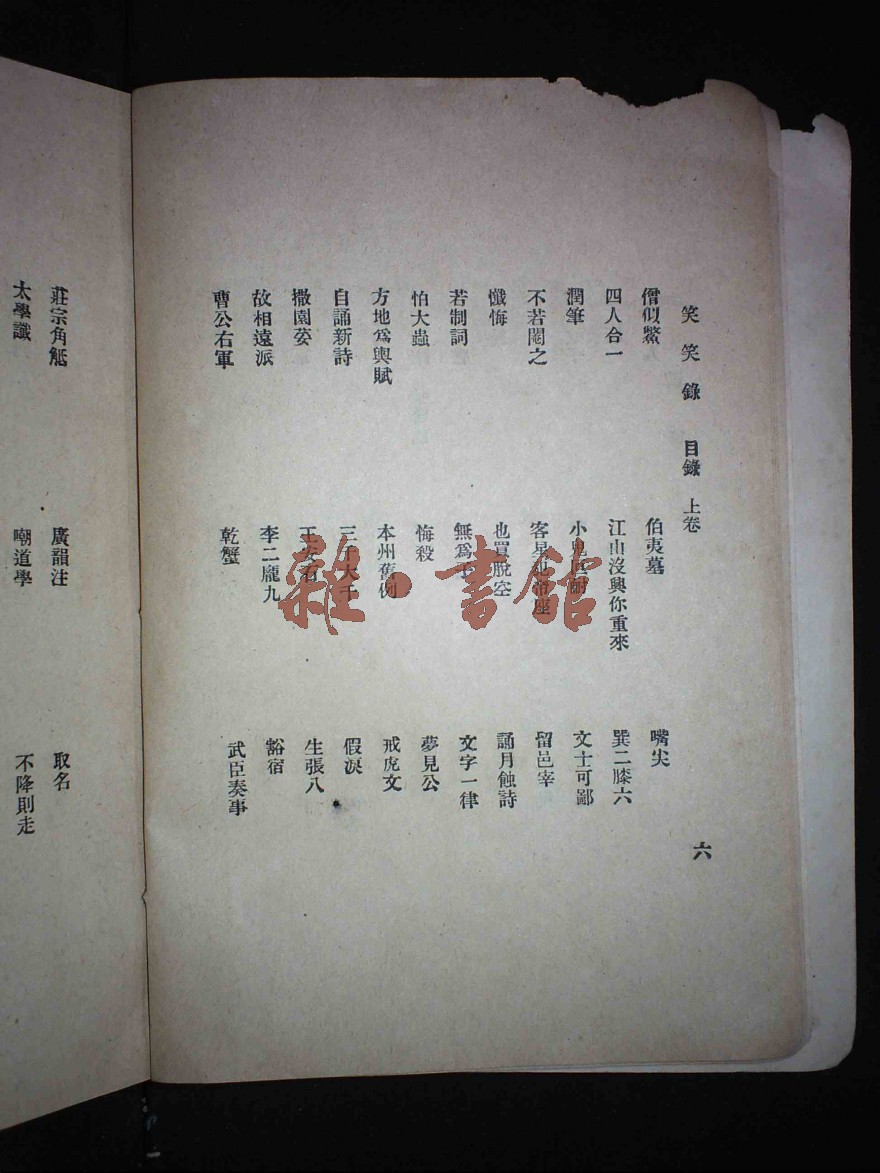 笑笑錄 目錄 上卷 六
僧似鱉 伯夷墓 嘴尖
四人合一 江山沒興你重來 巽二滕六
潤筆 小鬼叵耐 文士可鄙
不若閹之 客星犯帝座 留邑宰
懺悔 也買脫空 誦月蝕詩
若制詞 無爲子 文字一律
怕大蟲 悔殺 夢見公
方地爲輿賦 本州舊例 戒虎文
自誦新詩 三千大千 假淚
撒園荽 王安石 生張八
故相遠派 李二龐九 豁宿
曹公右軍 乾蟹 武臣奏事
莊宗角觝 廣韻注 取名
太學讖 嘲道學 不降則走
雜·書館